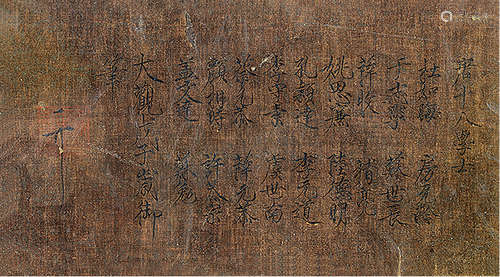 唐十八學士
杜如晦 房元齡
于志寧 蘇世長
薛收 褚亮
姚思廉 陸德明
孔穎達 李元道
李守素 虞世南
蔡允恭 薛元敬
顏相時 許敬宗
蓋文達 蘇勗
大觀 午歲御
筆